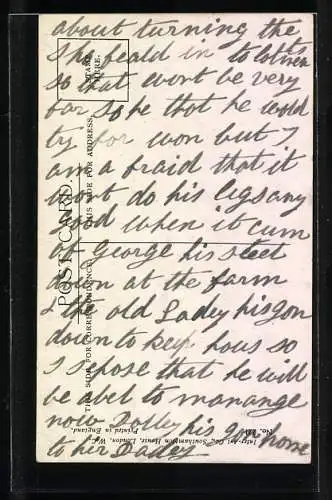 about turning the
She heald in to lotments
so that wont be very
far so he that he would
try for won but I
am a fraid that it
wont do his legs any
good when it cum
of George his steel
down at the farm
& the old Ladey his gon
down to keep hous so
I spose that he will
be abel to manange
now Dolley his gon home
to her Dadey
POST CARD
THIS SIDE FOR CORRESPONDENCE.
THIS SIDE FOR ADDRESS.
STAMP
HERE.
Inter-Art Co., Southampton House, London, W.C.
Printed in England.
No.